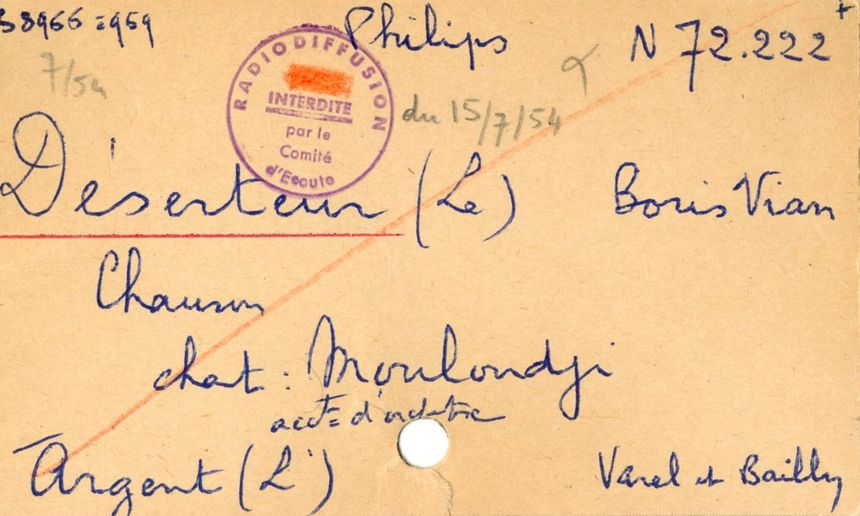 58966 = 959
Philips
N 72.222 +
7/54
RADIODIFFUSION
INTERDITE
par le
Comité
d'Ecoute
du 15/7/54
Déserteur (Le) Boris Vian
Chanson
chat : Mouloudji
acct = d'orchestre
Argent (L') Varel et Bailly